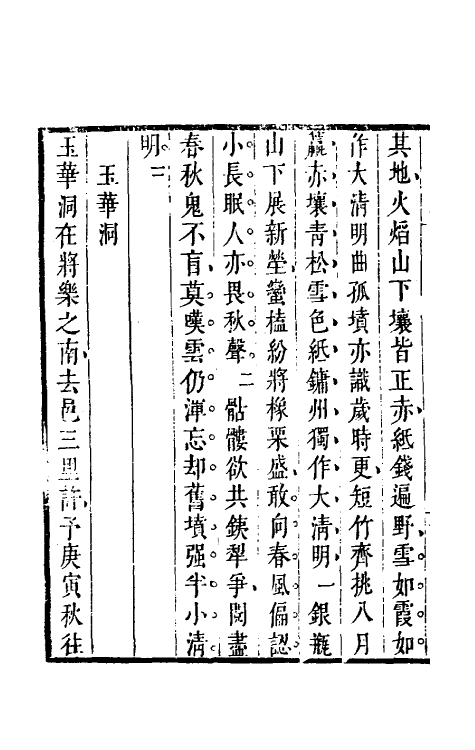 其地火焰山下壤皆正赤紙錢遍野雪如霞如
作大清明曲孤墳亦識歲時更短竹齊挑八月
赤壤青松雪色紙鏞州獨作大清明一銀甁
山下展新塋蠻榼紛將橡栗盛敢向春風偏認
小長眠人亦畏秋聲二骷髏欲共鋏犂爭閱盡
春秋鬼不盲莫嘆雲仍渾忘却舊墳强半小清
明三
玉華洞
玉華洞在將樂之南去邑三里許予庚寅秋往